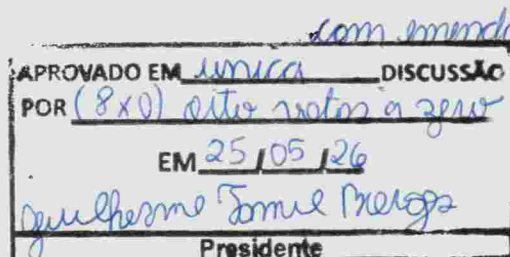 com emenda
APROVADO EM unica DISCUSSÃO
POR (8x0) oito votos a zero
EM 25/05/26
Guilherme
Presidente